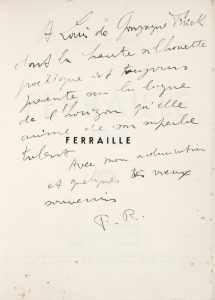 A Louis de Gonzague Frick
dont la haute silhouette
poétique est toujours
présente sur la ligne
de l'horizon qu'elle
anime de son superbe
talent
FERRAILLE
Avec mon admiration
et quelques vieux
souvenirs
P. R.